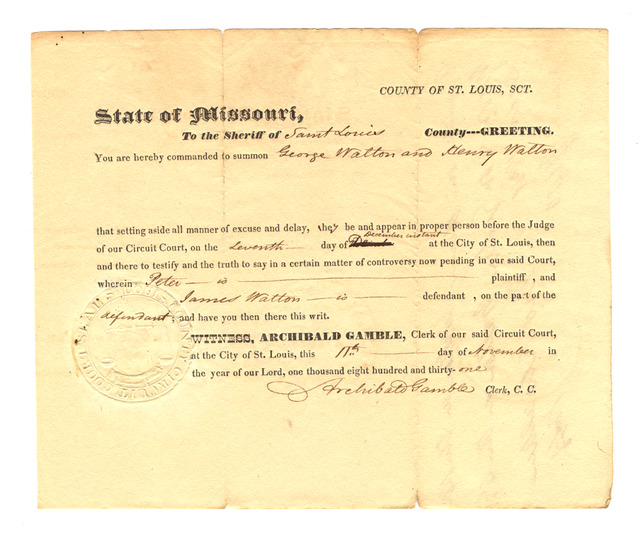 COUNTY OF ST. LOUIS, SCT.
State of Missouri,
To the Sheriff of Saint Louis County---GREETING.
You are hereby commanded to summon George Walton and Henry Walton
that setting aside all manner of excuse and delay, they be and appear in proper person before the Judge
December instant
of our Circuit Court, on the day of at the City of St. Louis, then
and there to testify and the truth to say in a certain matter of controversy now pending in our said Court,
wherein Peter — is — plaintiff , and
James Walton — is — defendant , on the part of the
defendant; and have you then there this writ.
WITNESS, ARCHIBALD GAMBLE, Clerk of our said Circuit Court,
at the City of St. Louis, this 11th — day of November in
the year of our Lord, one thousand eight hundred and thirty-one
Archibald Gamble Clerk, C. C.